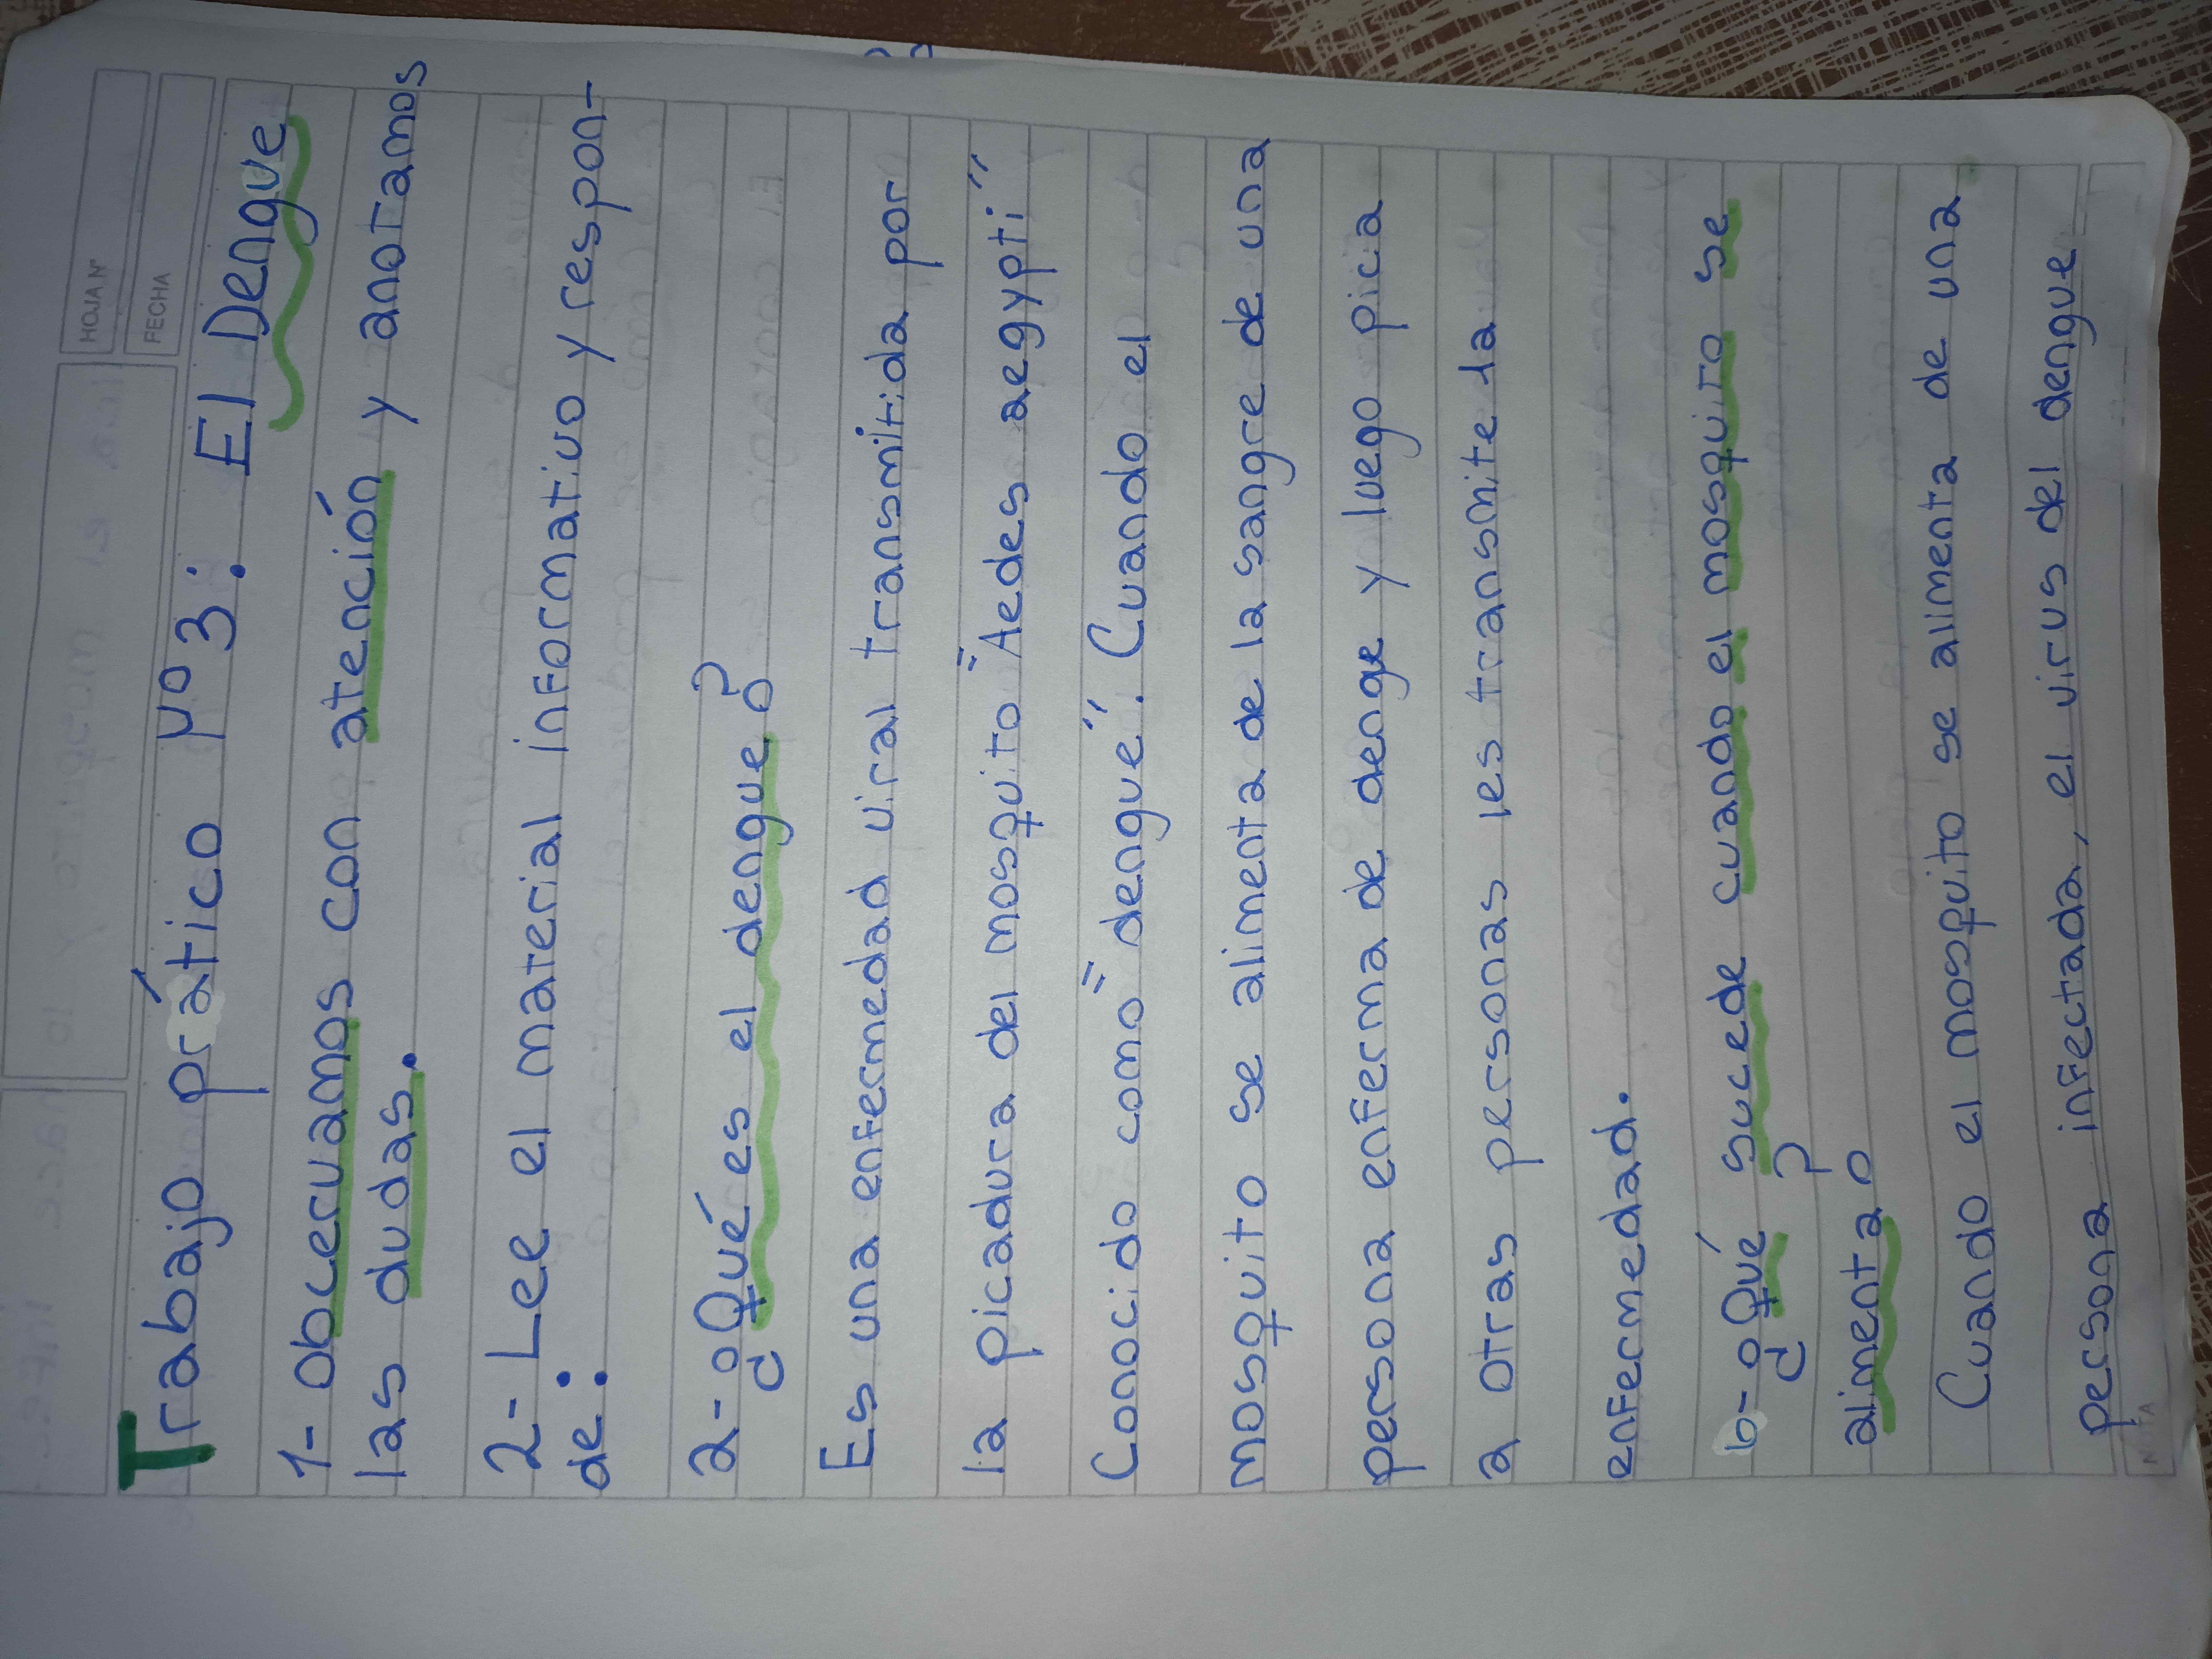 HOJA Nº
FECHA
Trabajo prático Nº 3: El Dengue
1- Obcervamos con atención y anotamos
las dudas.
2- Lee el material informativo y respon-
de:
a- ¿Qué es el dengue?
Es una enfermedad viral transmitida por
la picadura del mosquito "Aedes aegypti"
Conocido como "dengue". Cuando el
mosquito se alimenta de la sangre de una
persona enferma de denge y luego picia
a otras personas les transmite la
enfermedad.
b- ¿Qué sucede cuando el mosquito se
alimenta?
Cuando el mosquito se alimenta de una
persona infectada, el virus del dengue
NOTA